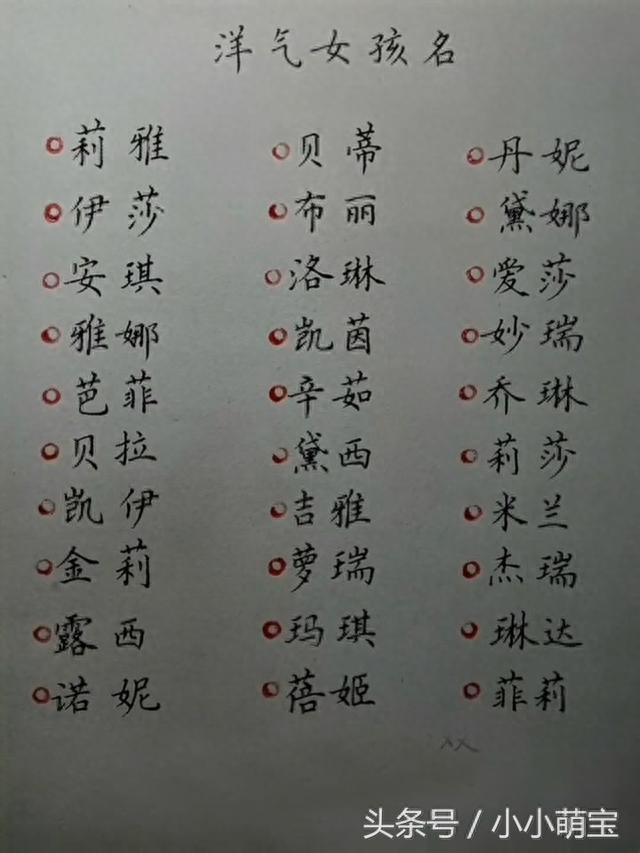 洋气女孩名
莉雅 贝蒂 丹妮
伊莎 布丽 黛娜
安琪 洛琳 爱莎
雅娜 凯茵 妙瑞
芭菲 辛茹 乔琳
贝拉 黛西 莉莎
凯伊 吉雅 米兰
金莉 萝瑞 杰瑞
露西 玛琪 琳达
诺妮 蓓姬 菲莉
头条号 / 小小萌宝